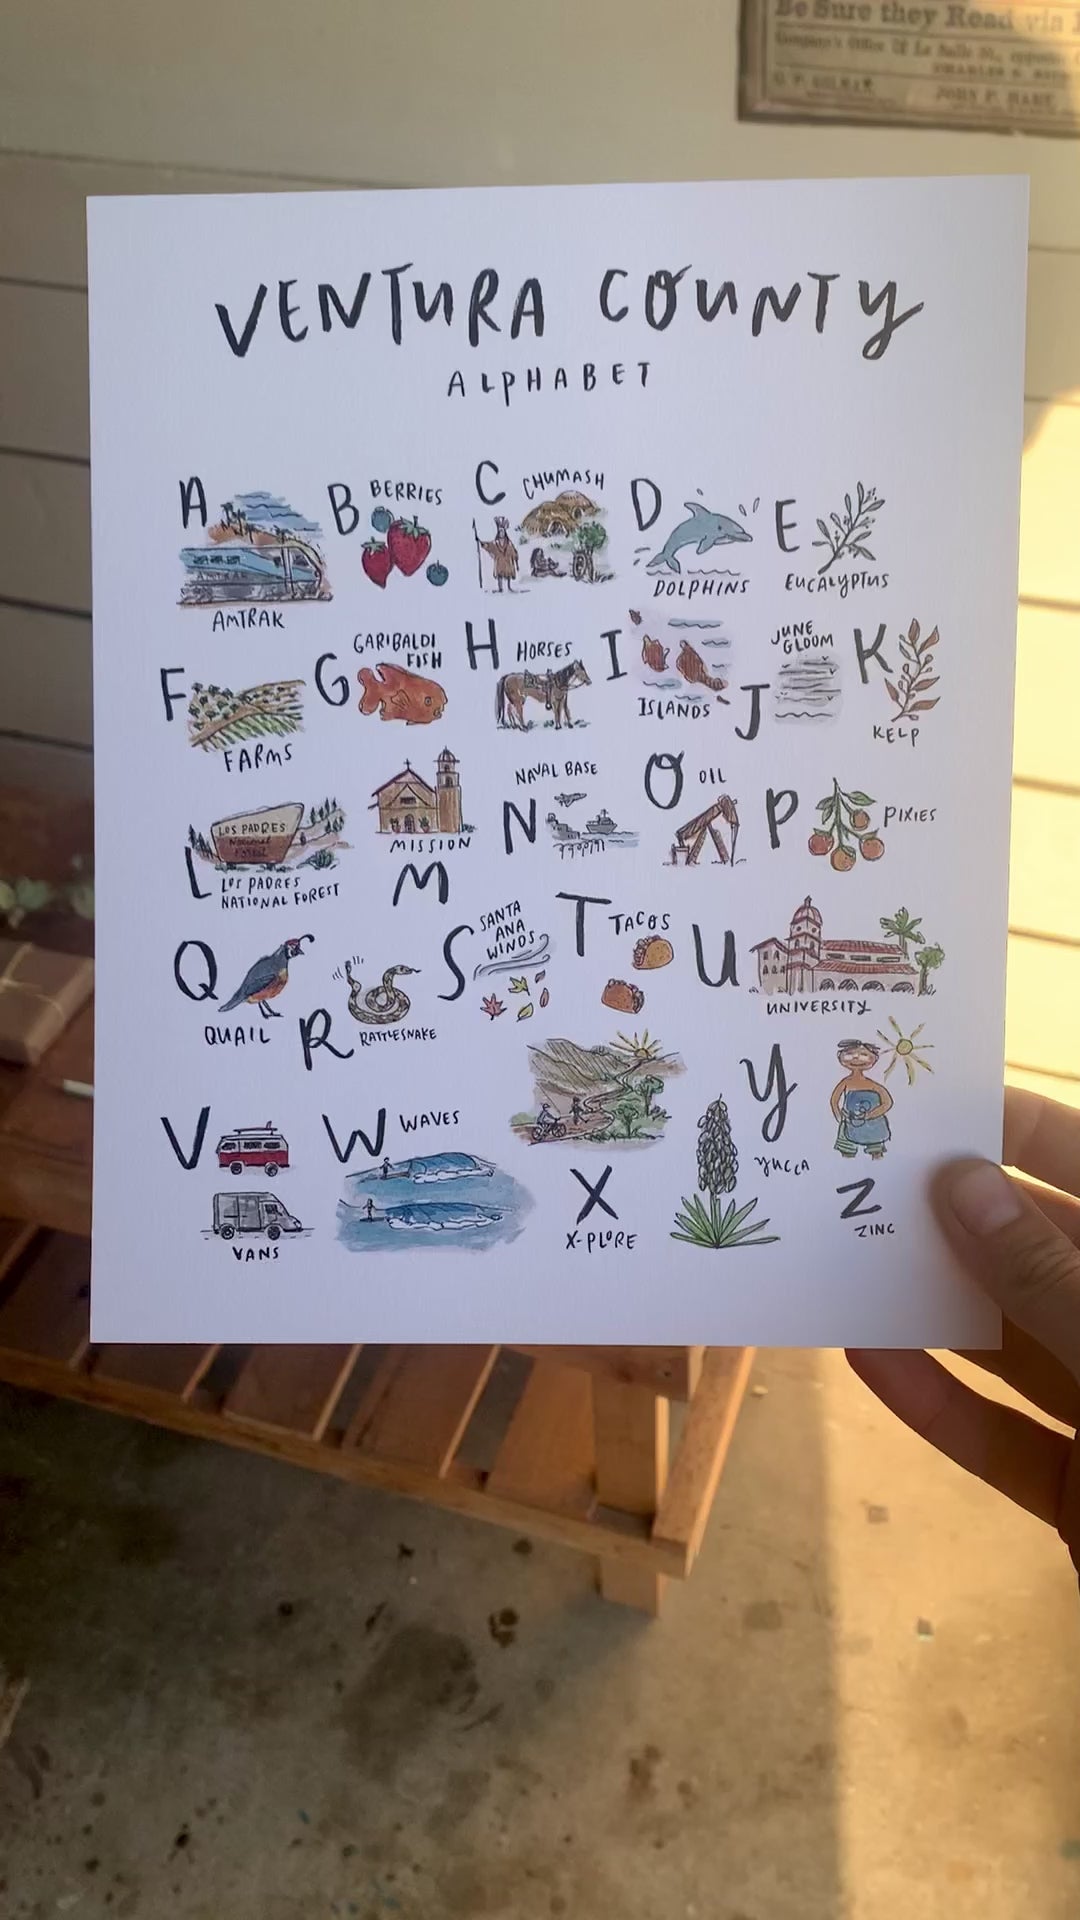 Be Sure they Read via
VENTURA COUNTY
ALPHABET
A
AMTRAK
B
BERRIES
C
CHUMASH
D
DOLPHINS
E
EUCALYPTUS
F
FARMS
G
GARIBALDI
FISH
H
HORSES
I
ISLANDS
J
JUNE
GLOOM
K
KELP
L
LOS PADRES
National
Forest
LOS PADRES
NATIONAL FOREST
MISSION
M
NAVAL BASE
N
O
OIL
P
PIXIES
Q
QUAIL
R
RATTLESNAKE
S
SANTA
ANA
WINDS
T
TACOS
U
UNIVERSITY
V
VANS
W
WAVES
X
X-PLORE
Y
YUCCA
Z
ZINC